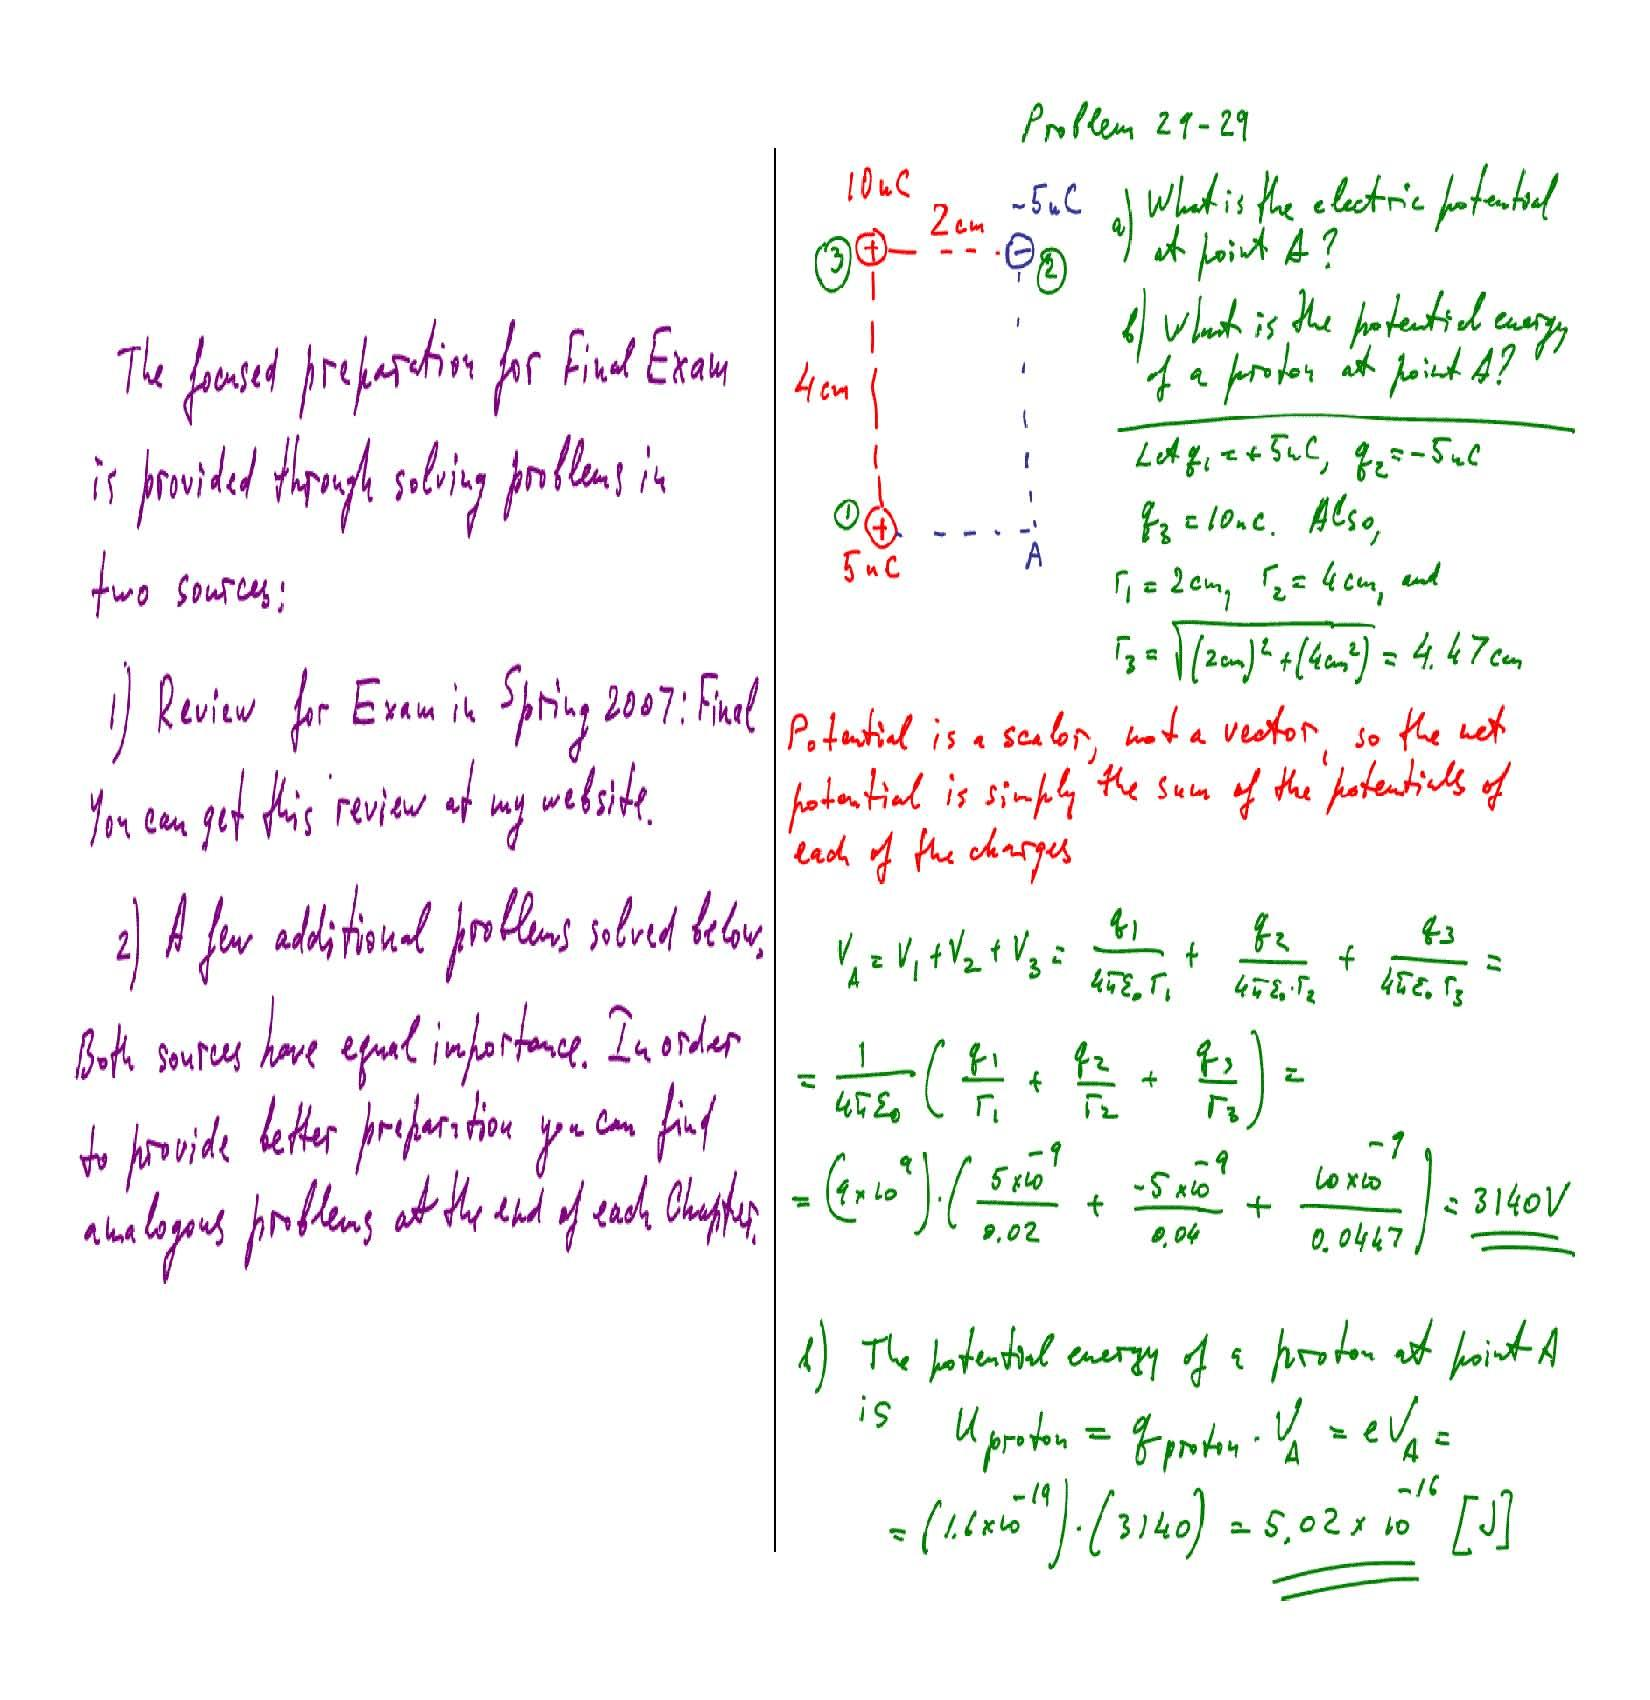 The focused preparation for Final Exam
is provided through solving problems in
two sources:
1) Review for Exam in Spring 2007: Final
You can get this review at my website.
2) A few additional problems solved below.
Both sources have equal importance. In order
to provide better preparation you can find
analogous problems at the end of each Chapter.
Problem 29-29
10nC
2cm
-5nC
③ + − ②
4cm
① +
5nC
A
a) What is the electric potential
at point A?
b) What is the potential energy
of a proton at point A?
Let q₁=+5nC, q₂=-5nC
q₃=10nC. Also,
r₁=2cm, r₂=4cm, and
r₃=√((2cm)²+(4cm²)=4.47cm
Potential is a scalor, not a vector, so the net
potential is simply the sum of the potentials of
each of the charges
V_A = V₁+V₂+V₃ = q₁/4πε₀r₁ + q₂/4πε₀·r₂ + q₃/4πε₀r₃ =
= 1/4πε₀ (q₁/r₁ + q₂/r₂ + q₃/r₃) =
= (9×10⁹)·(5×10⁻⁹/0.02 + -5×10⁻⁹/0.04 + 10×10⁻⁹/0.0447) = 3140V
b) The potential energy of a proton at point A
is U_proton = q_proton·V_A = eV_A =
= (1.6×10⁻¹⁹)·(3140) = 5.02×10⁻¹⁶ [J]